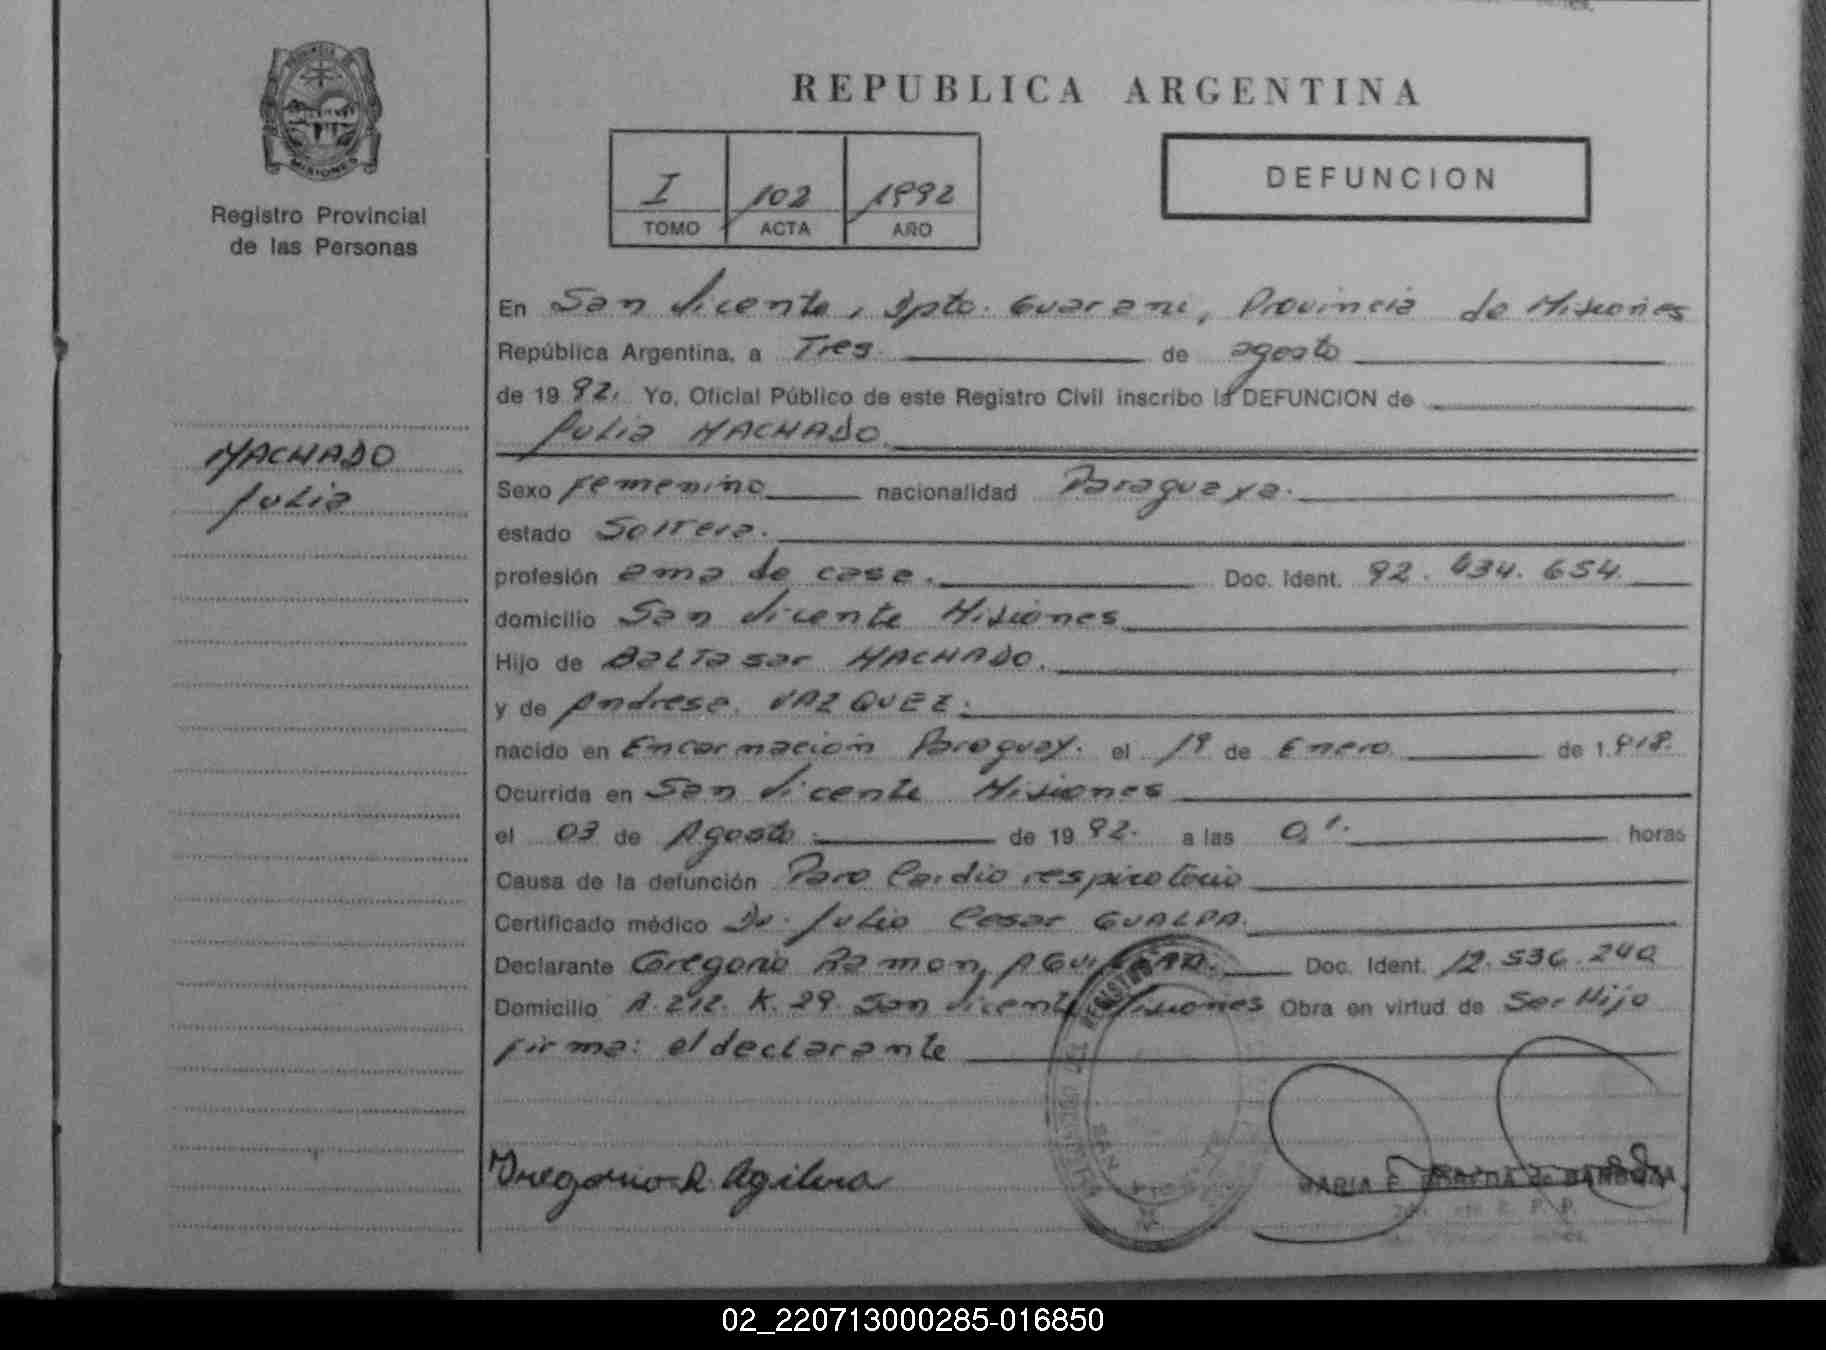 REPUBLICA ARGENTINA
MISIONES
Registro Provincial
de las Personas
I 102 1992
TOMO ACTA AÑO
DEFUNCION
En San Vicente, Dpto. Guarani, Provincia de Misiones
República Argentina, a Tres de agosto
de 1992. Yo, Oficial Público de este Registro Civil inscribo la DEFUNCION de
Julia MACHADO.
MACHADO
Julia
Sexo femenino nacionalidad Paraguaya.
estado Soltera.
profesión ama de casa. Doc. Ident. 92.634.654.
domicilio San Vicente Misiones
Hijo de Baltasar MACHADO.
y de Andresa VAZQUEZ.
nacido en Encarnación Paraguay. el 19 de Enero de 1.918.
Ocurrida en San Vicente Misiones
el 03 de Agosto de 1992. a las 0,1. horas
Causa de la defunción Paro Cardio respiratorio
Certificado médico Dr. Julio Cesar GUALPA.
Declarante Gregorio Ramon, Doc. Ident. 12.536.240
Domicilio A. 212. K. 29. San Vicente Misiones Obra en virtud de Ser Hijo
firma: el declarante
Gregorio R. Agilera
MARIA E.
02_220713000285-016850